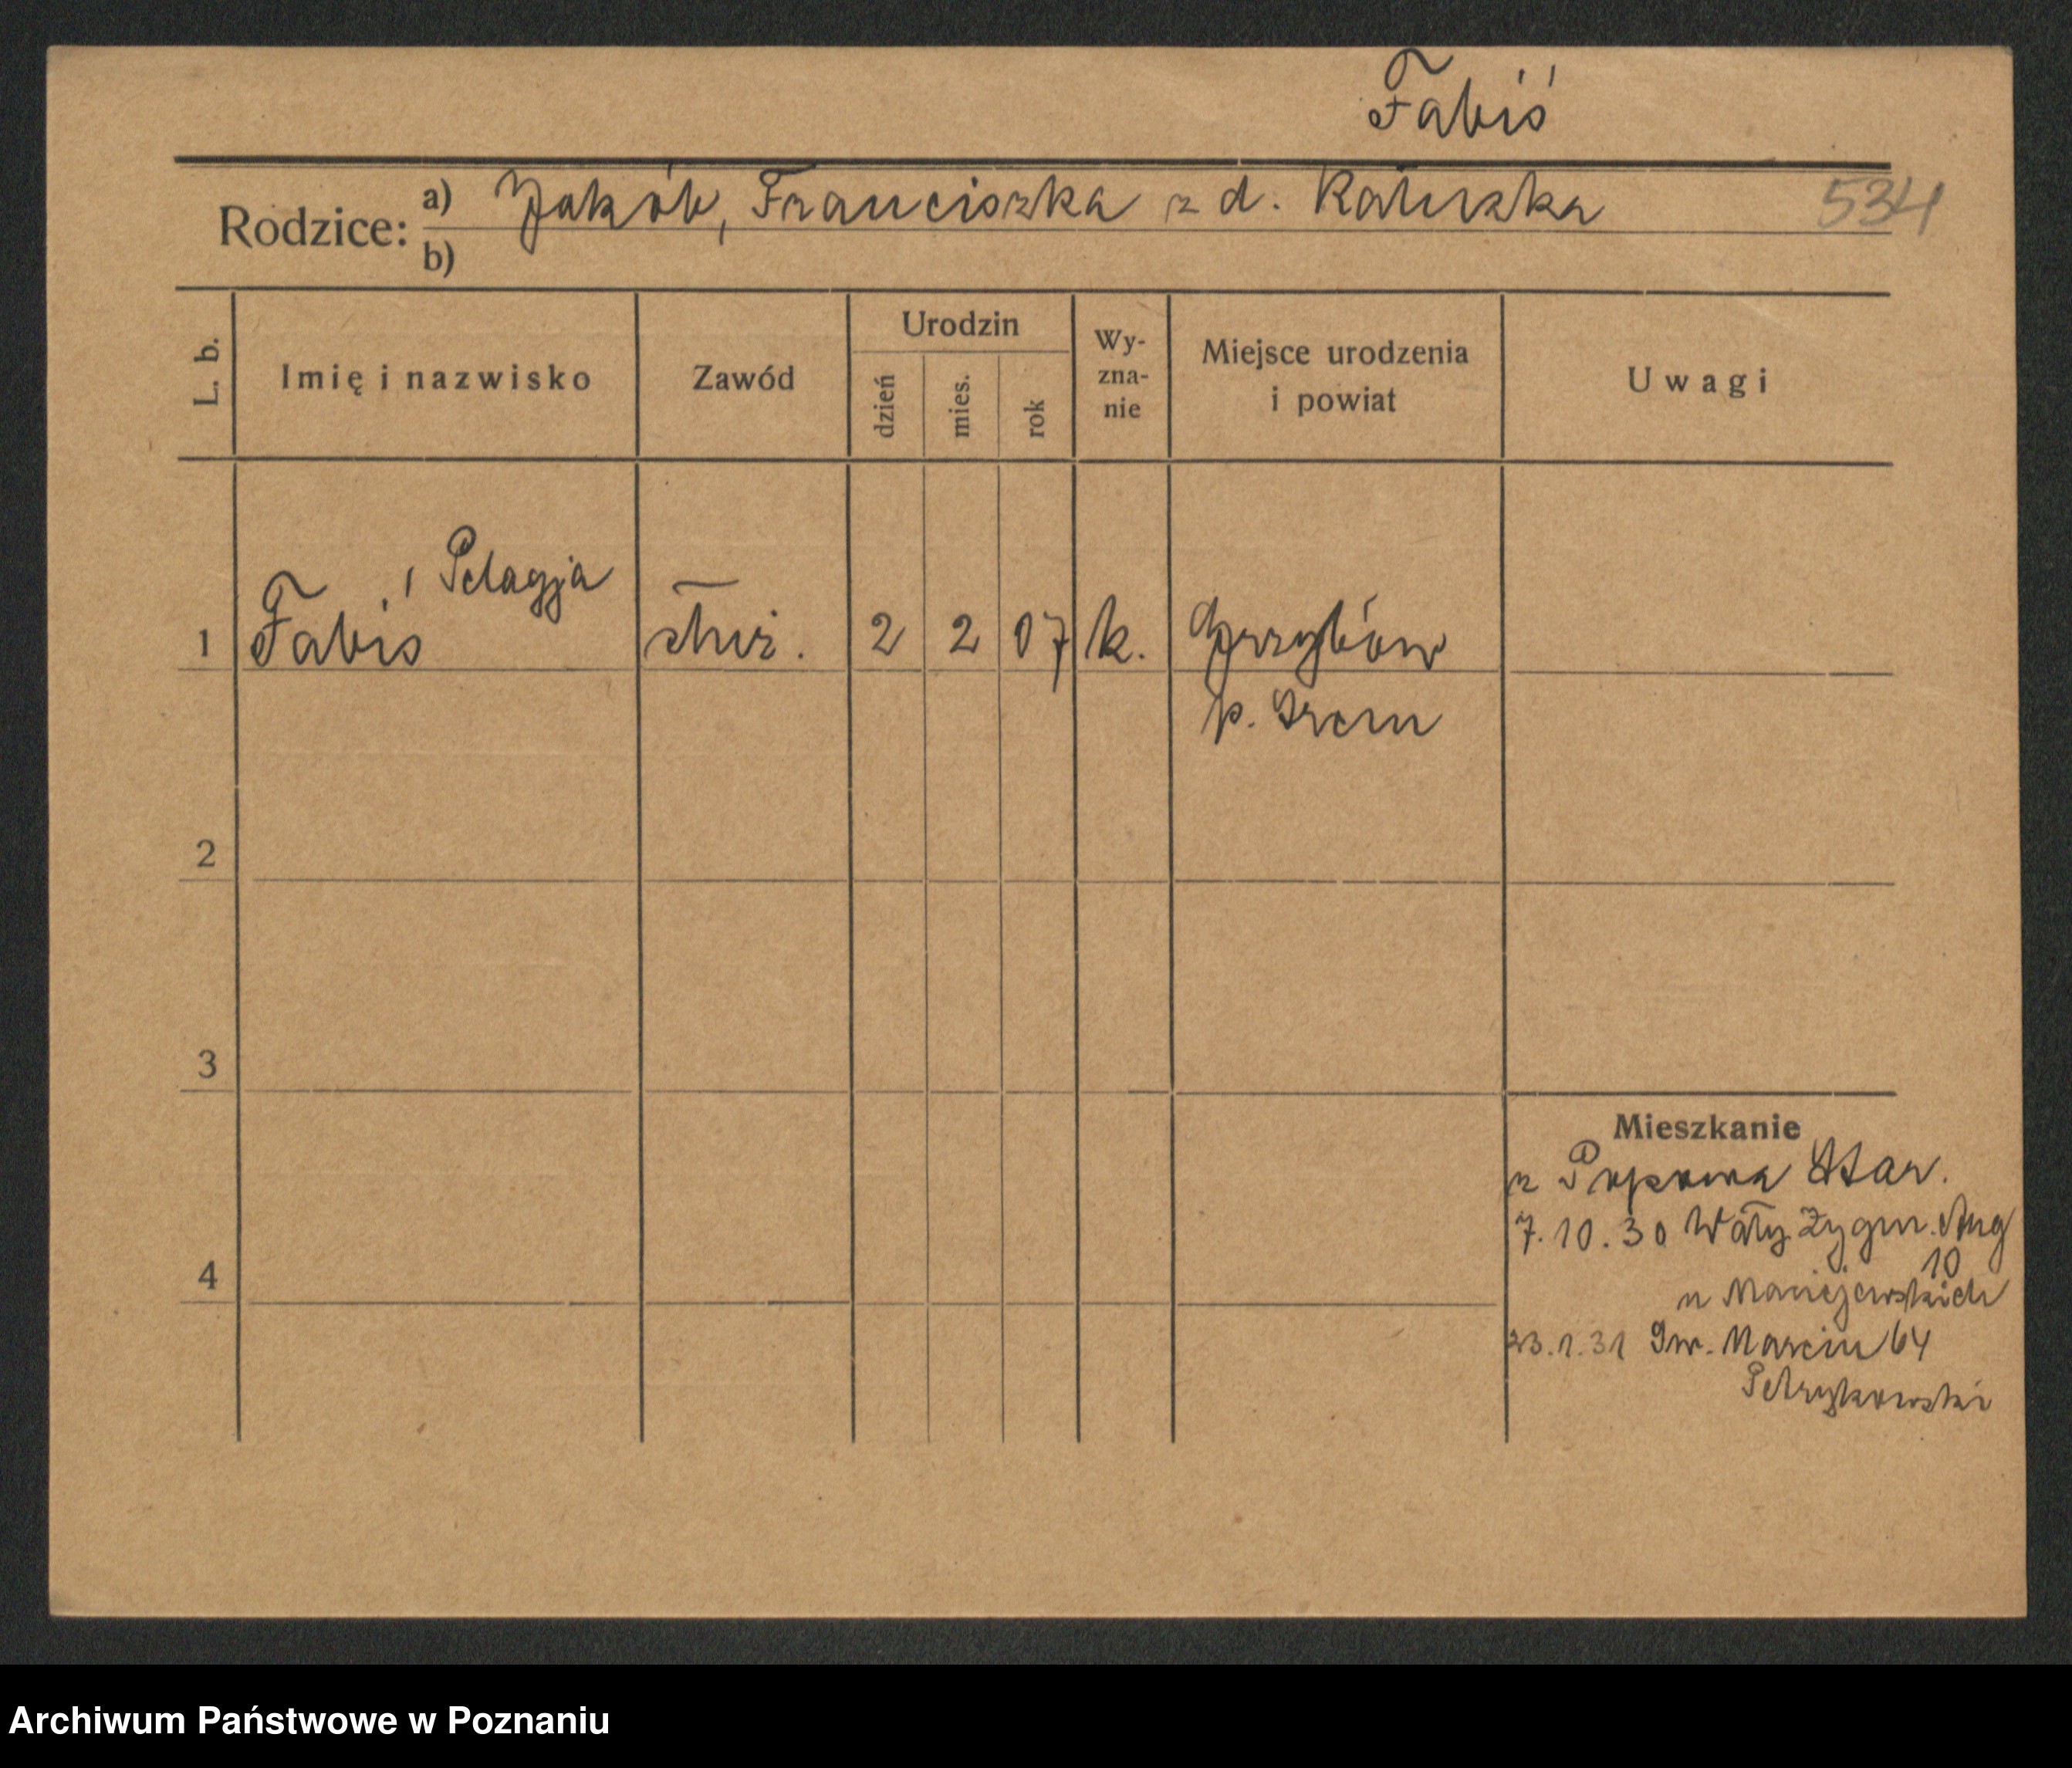 Fabiś
Rodzice: a) Jakób, Franciszka z d. Kałuszka 534
b)
L. b. Imię i nazwisko Zawód Urodzin dzień mies. rok Wy-zna-nie Miejsce urodzenia i powiat Uwagi
Pelagja
1 Fabiś służ. 2 2 07 k. Grzybów
p. Śrem
2
3
Mieszkanie
z Popowa Star.
7.10.30 Wały Zygm. Aug
10
4
u Maciejewskich
23.1.31 Św. Marcin 64
Petrykowski
Archiwum Państwowe w Poznaniu